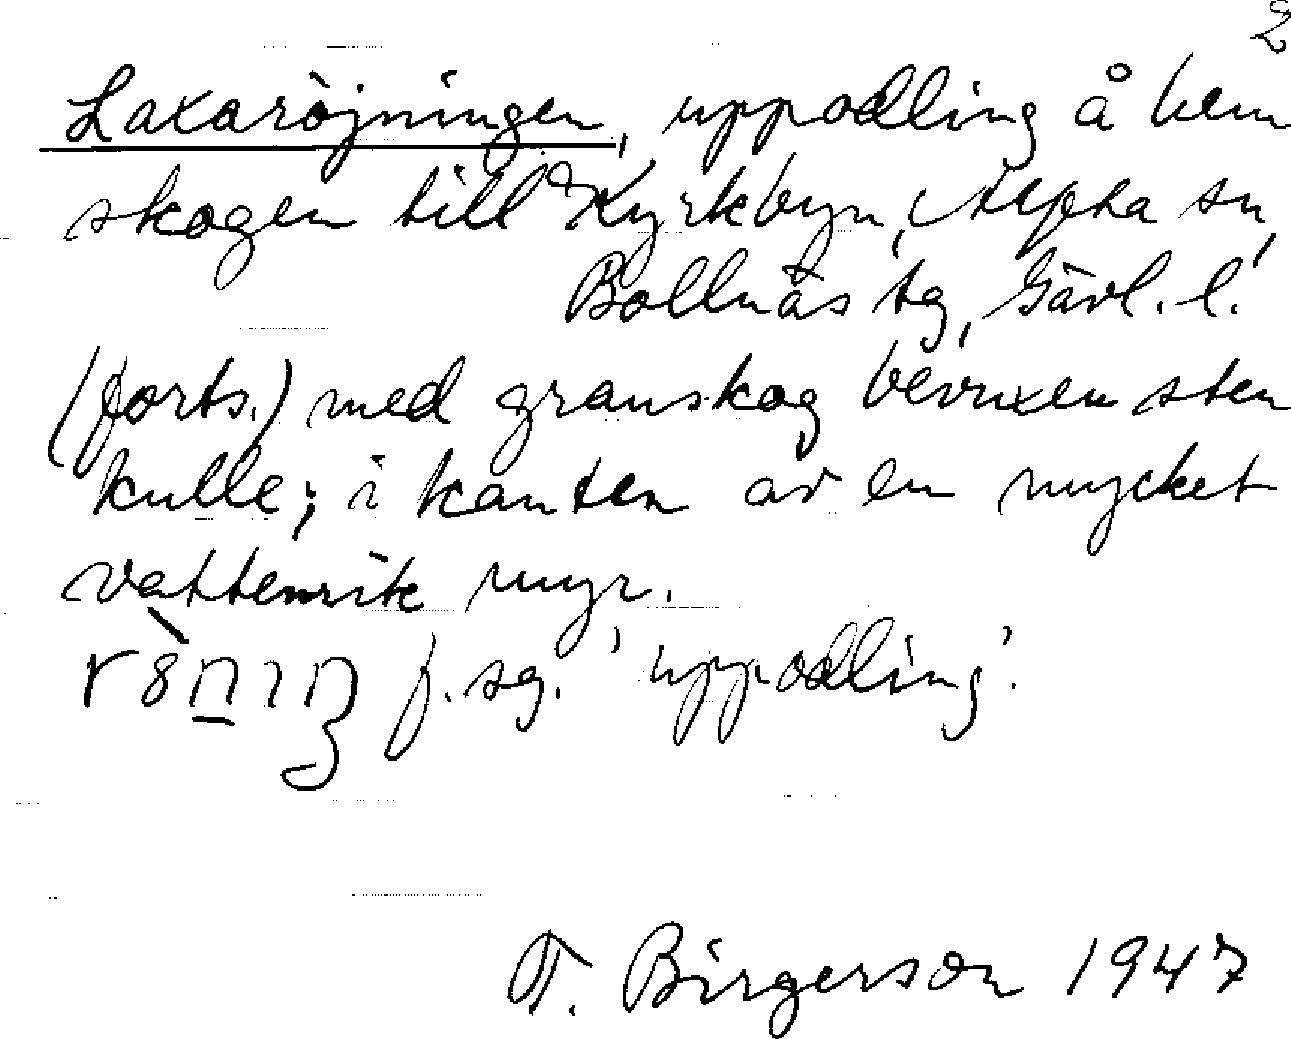 2
Laxaröjningen, uppodling å hem
skogen till Kyrkbyn, Alfta sn,
Bollnäs tg, Gävl. l.
(forts.) med granskog bevuxen sten
kulle; i kanten av en mycket
vattenrik myr.
f. sg. 'uppodling'.
T. Birgerson 1947